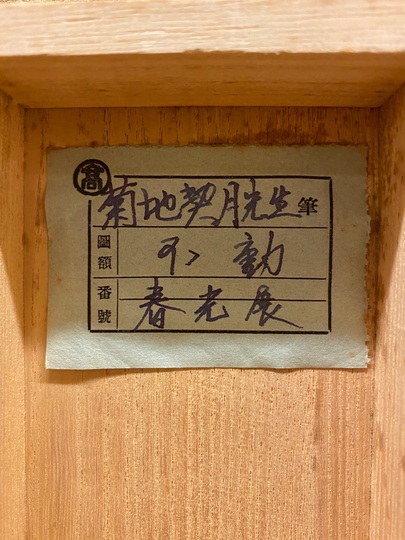 髙
菊地契月先生筆
圖額 不動
番號 春光展